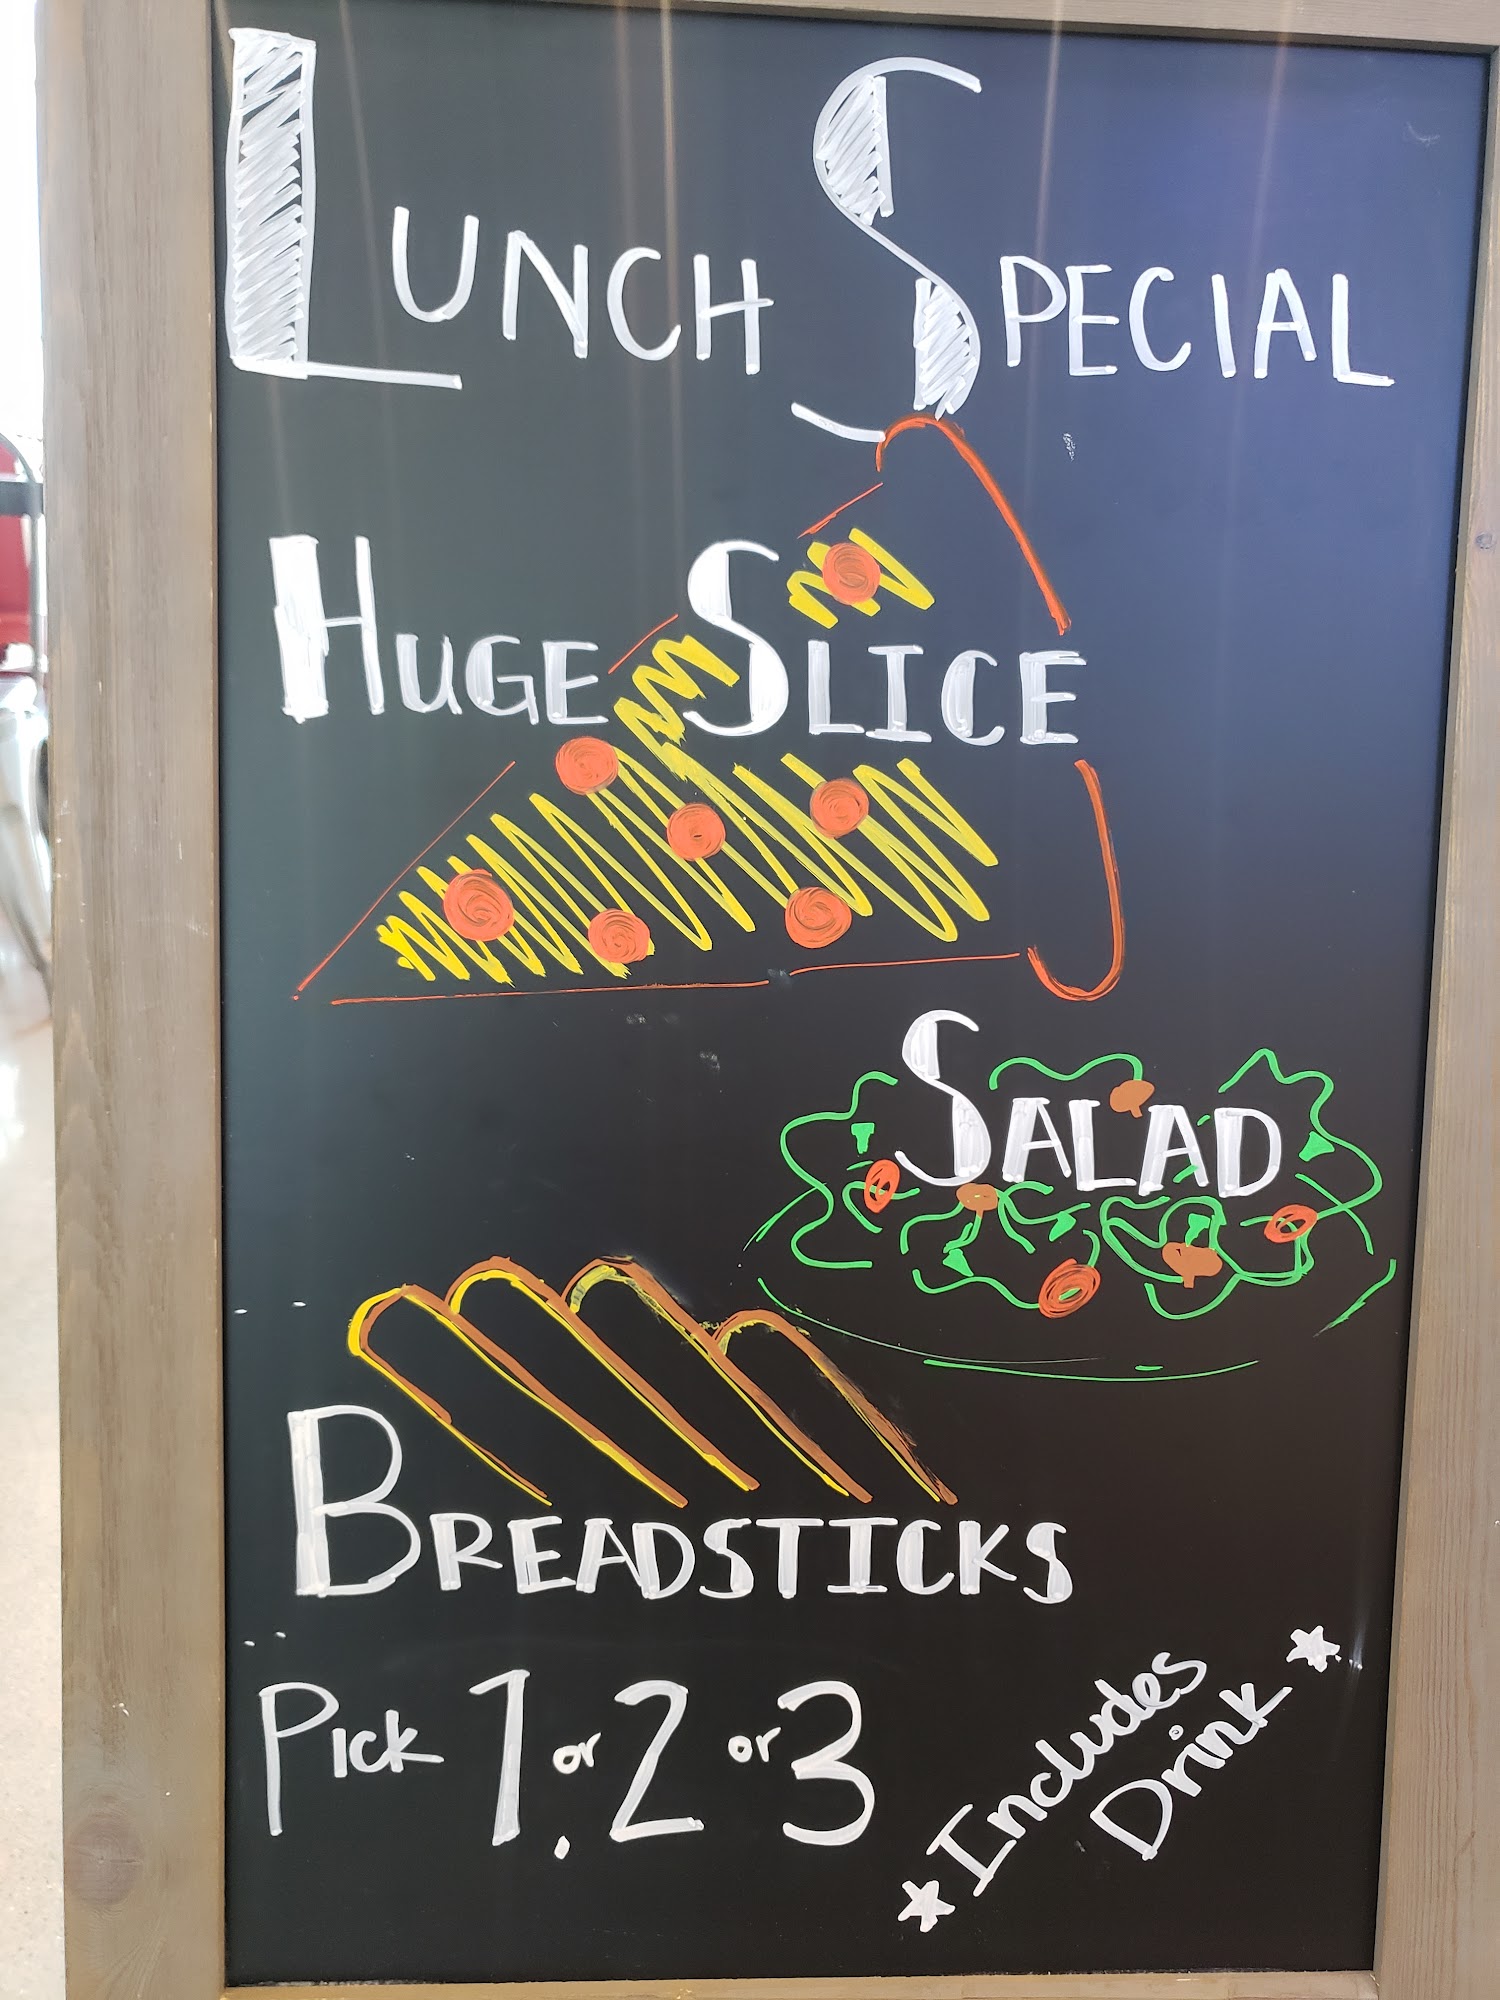 LUNCH SPECIAL
HUGE SLICE
SALAD
BREADSTICKS
PICK 1 or 2 or 3
Includes
Drink